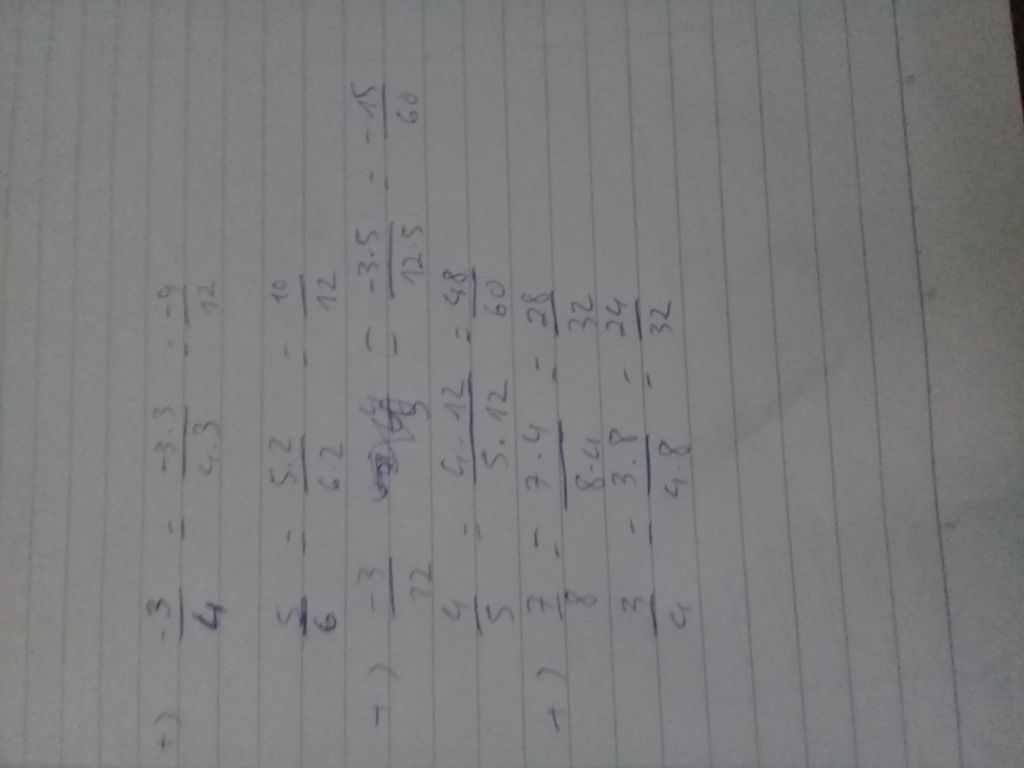 +) -3/4 = -3.3/4.3 = -9/12
5/6 = 5.2/6.2 = 10/12
+) -3/12 = -3.5/12.5 = -15/60
4/5 = 4.12/5.12 = 48/60
+) 7/8 = 7.4/8.4 = 28/32
3/4 = 3.8/4.8 = 24/32